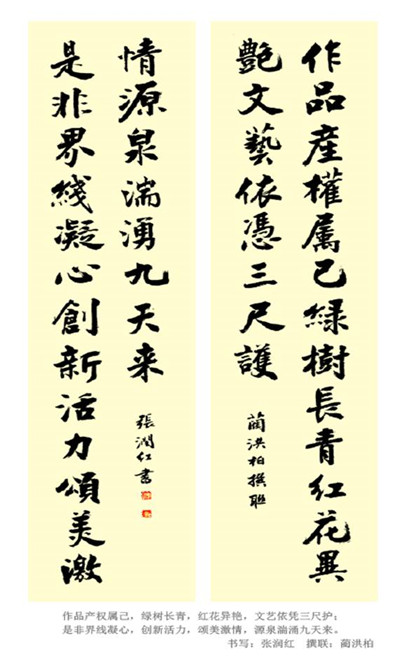 作品產權属己緑樹長青紅花異
艷文藝依憑三尺護
藺洪柏撰聯
是非界綫凝心創新活力頌美激
情源泉湍湧九天来
張潤红書
作品产权属己，绿树长青，红花异艳，文艺依凭三尺护；
是非界线凝心，创新活力，颂美激情，源泉湍涌九天来。
书写：张润红　撰联：蔺洪柏